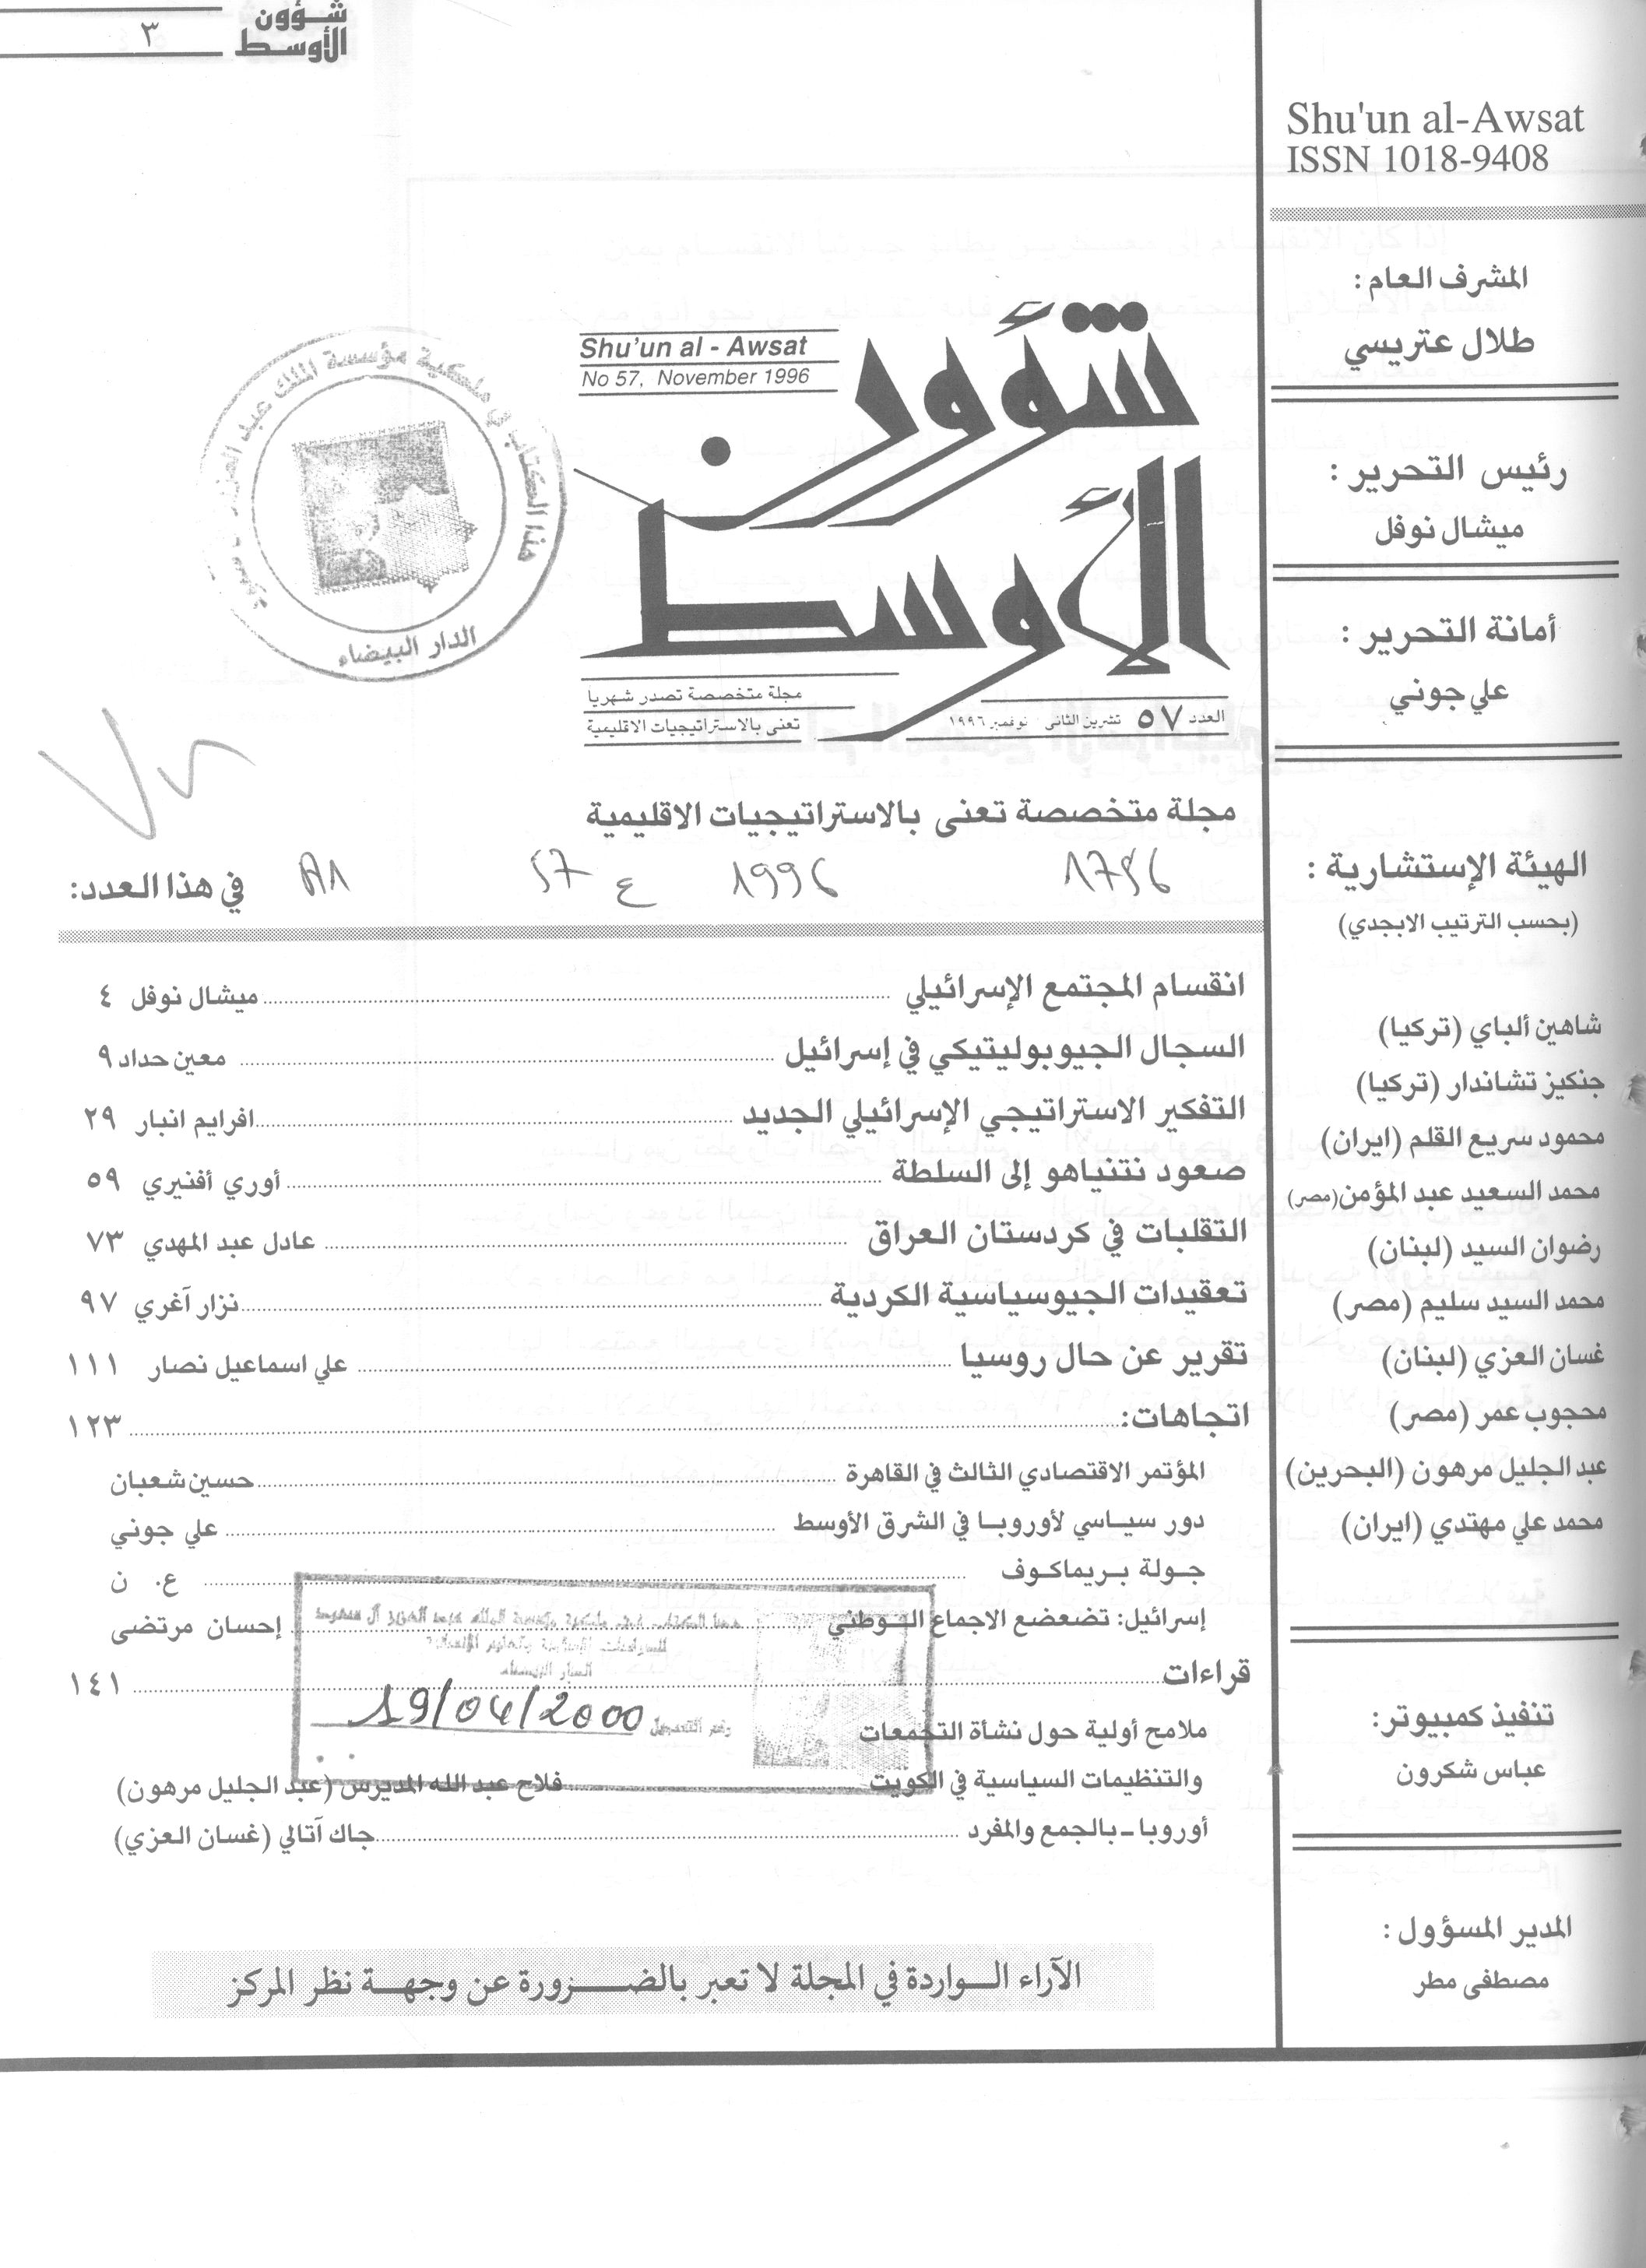 شؤون
الأوسط
٣
Shu'un al-Awsat
ISSN 1018-9408
المشرف العام :
طلال عتريسي
رئيس التحرير :
ميشال نوفل
أمانة التحرير :
علي جوني
الهيئة الإستشارية :
(بحسب الترتيب الابجدي)
شاهين ألباي (تركيا)
جنكيز تشاندار (تركيا)
محمود سريع القلم (ايران)
محمد السعيد عبد المؤمن (مصر)
رضوان السيد (لبنان)
محمد السيد سليم (مصر)
غسان العزي (لبنان)
محجوب عمر (مصر)
عبد الجليل مرهون (البحرين)
محمد علي مهتدي (ايران)
تنفيذ كمبيوتر:
عباس شكرون
المدير المسؤول :
مصطفى مطر
Shu'un al - Awsat
No 57, November 1996
شؤون
الأوسط
مجلة متخصصة تصدر شهريا
تعنى بالاستراتيجيات الاقليمية
العدد ٥٧ تشرين الثاني نوفمبر ١٩٩٦
هذا الكتاب في ملكية مؤسسة الملك عبد العزيز
الدار البيضاء
مجلة متخصصة تعنى بالاستراتيجيات الاقليمية
1756 1996 ع 57
في هذا العدد:
انقسام المجتمع الإسرائيلي ........ ميشال نوفل ٤
السجال الجيوبوليتيكي في إسرائيل ........ معين حداد ٩
التفكير الاستراتيجي الإسرائيلي الجديد ........ افرايم انبار ٢٩
صعود نتنياهو إلى السلطة ........ أوري أفنيري ٥٩
التقلبات في كردستان العراق ........ عادل عبد المهدي ٧٣
تعقيدات الجيوسياسية الكردية ........ نزار آغري ٩٧
تقرير عن حال روسيا ........ علي اسماعيل نصار ١١١
اتجاهات: ........ ١٢٣
المؤتمر الاقتصادي الثالث في القاهرة ........ حسين شعبان
دور سياسي لأوروبا في الشرق الأوسط ........ علي جوني
جولة بريماكوف ........ ع. ن
إسرائيل: تضعضع الاجماع الوطني ........ إحسان مرتضى
قراءات ........ ١٤١
ملامح أولية حول نشأة التجمعات
والتنظيمات السياسية في الكويت ........ فلاح عبد الله المديرس (عبد الجليل مرهون)
أوروبا ـ بالجمع والمفرد ........ جاك آتالي (غسان العزي)
رقم التسجيل 19/04/2000
الآراء الواردة في المجلة لا تعبر بالضرورة عن وجهة نظر المركز